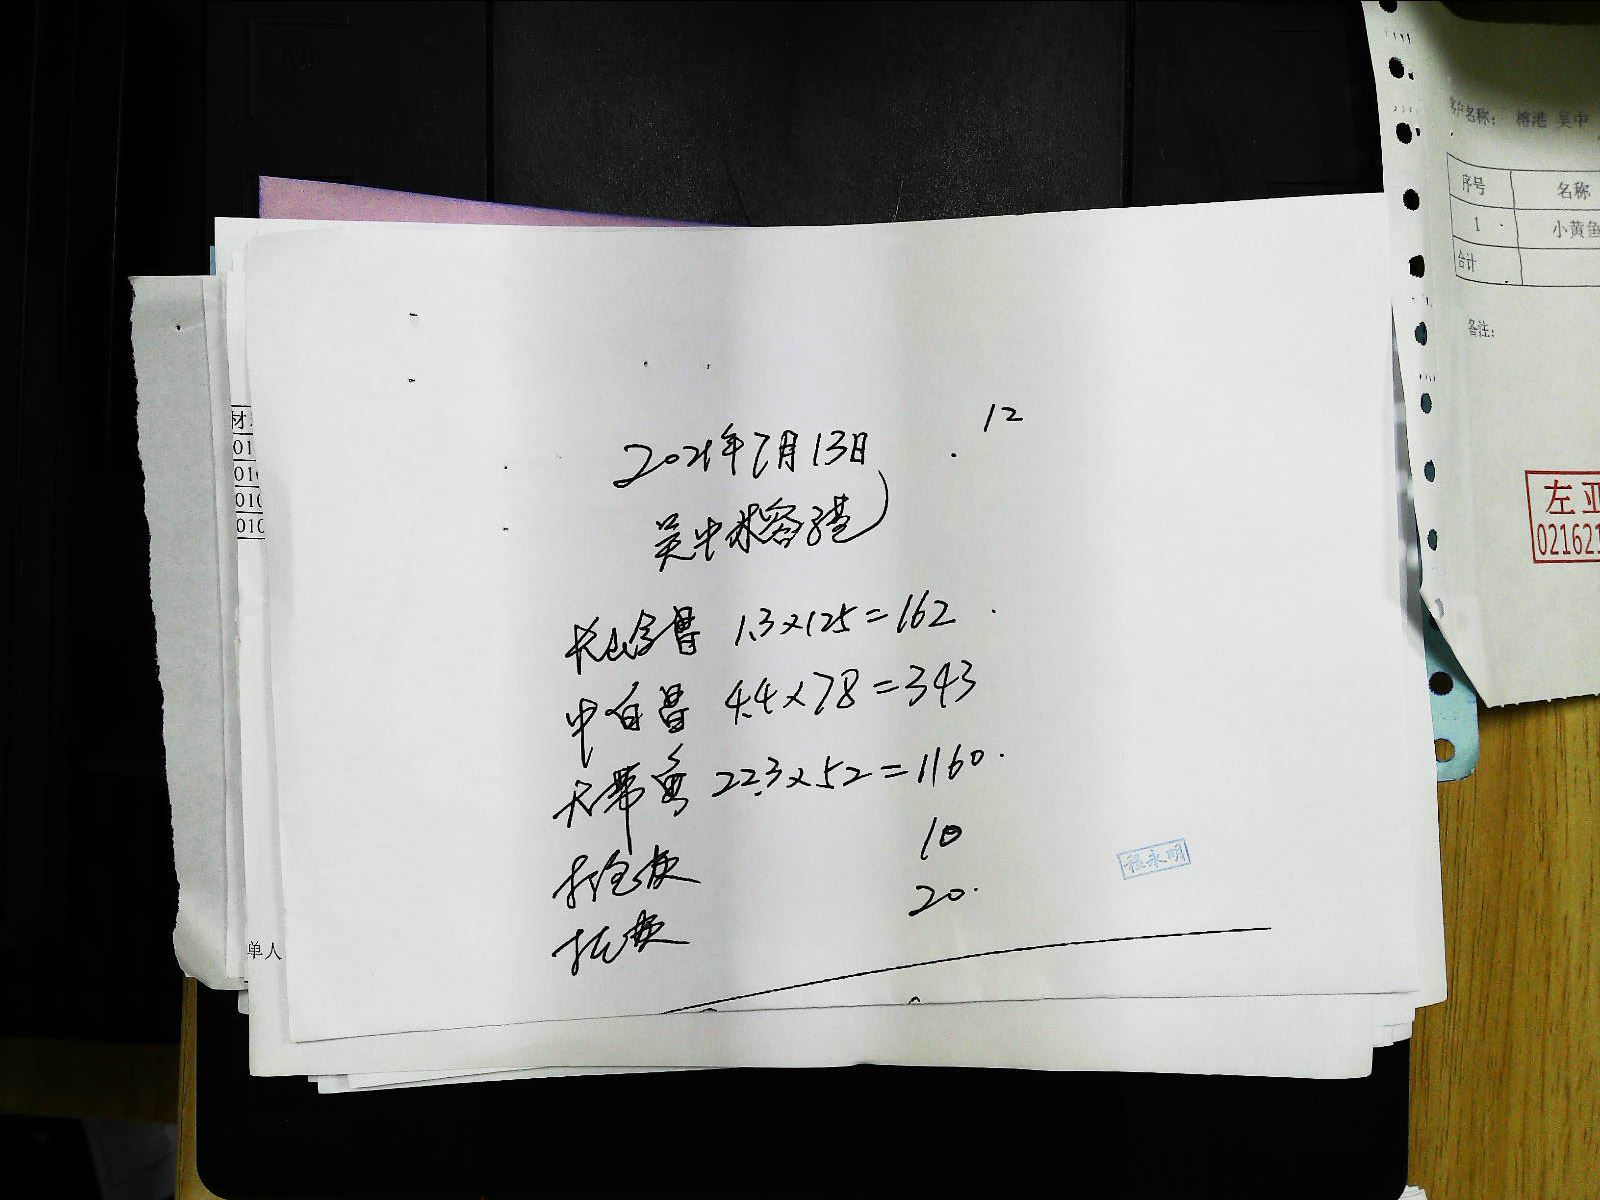 12
2021年7月13日
吴中林容
1.3×125=162
中白昌 4.4×78=343
大带鱼 22.3×52=1160
打包费 10
托费 20
程永明
客户名称: 榕港 吴中
序号 名称
1 小黄鱼
合计
备注:
左亚
021621
材
01
010
010
010
单人